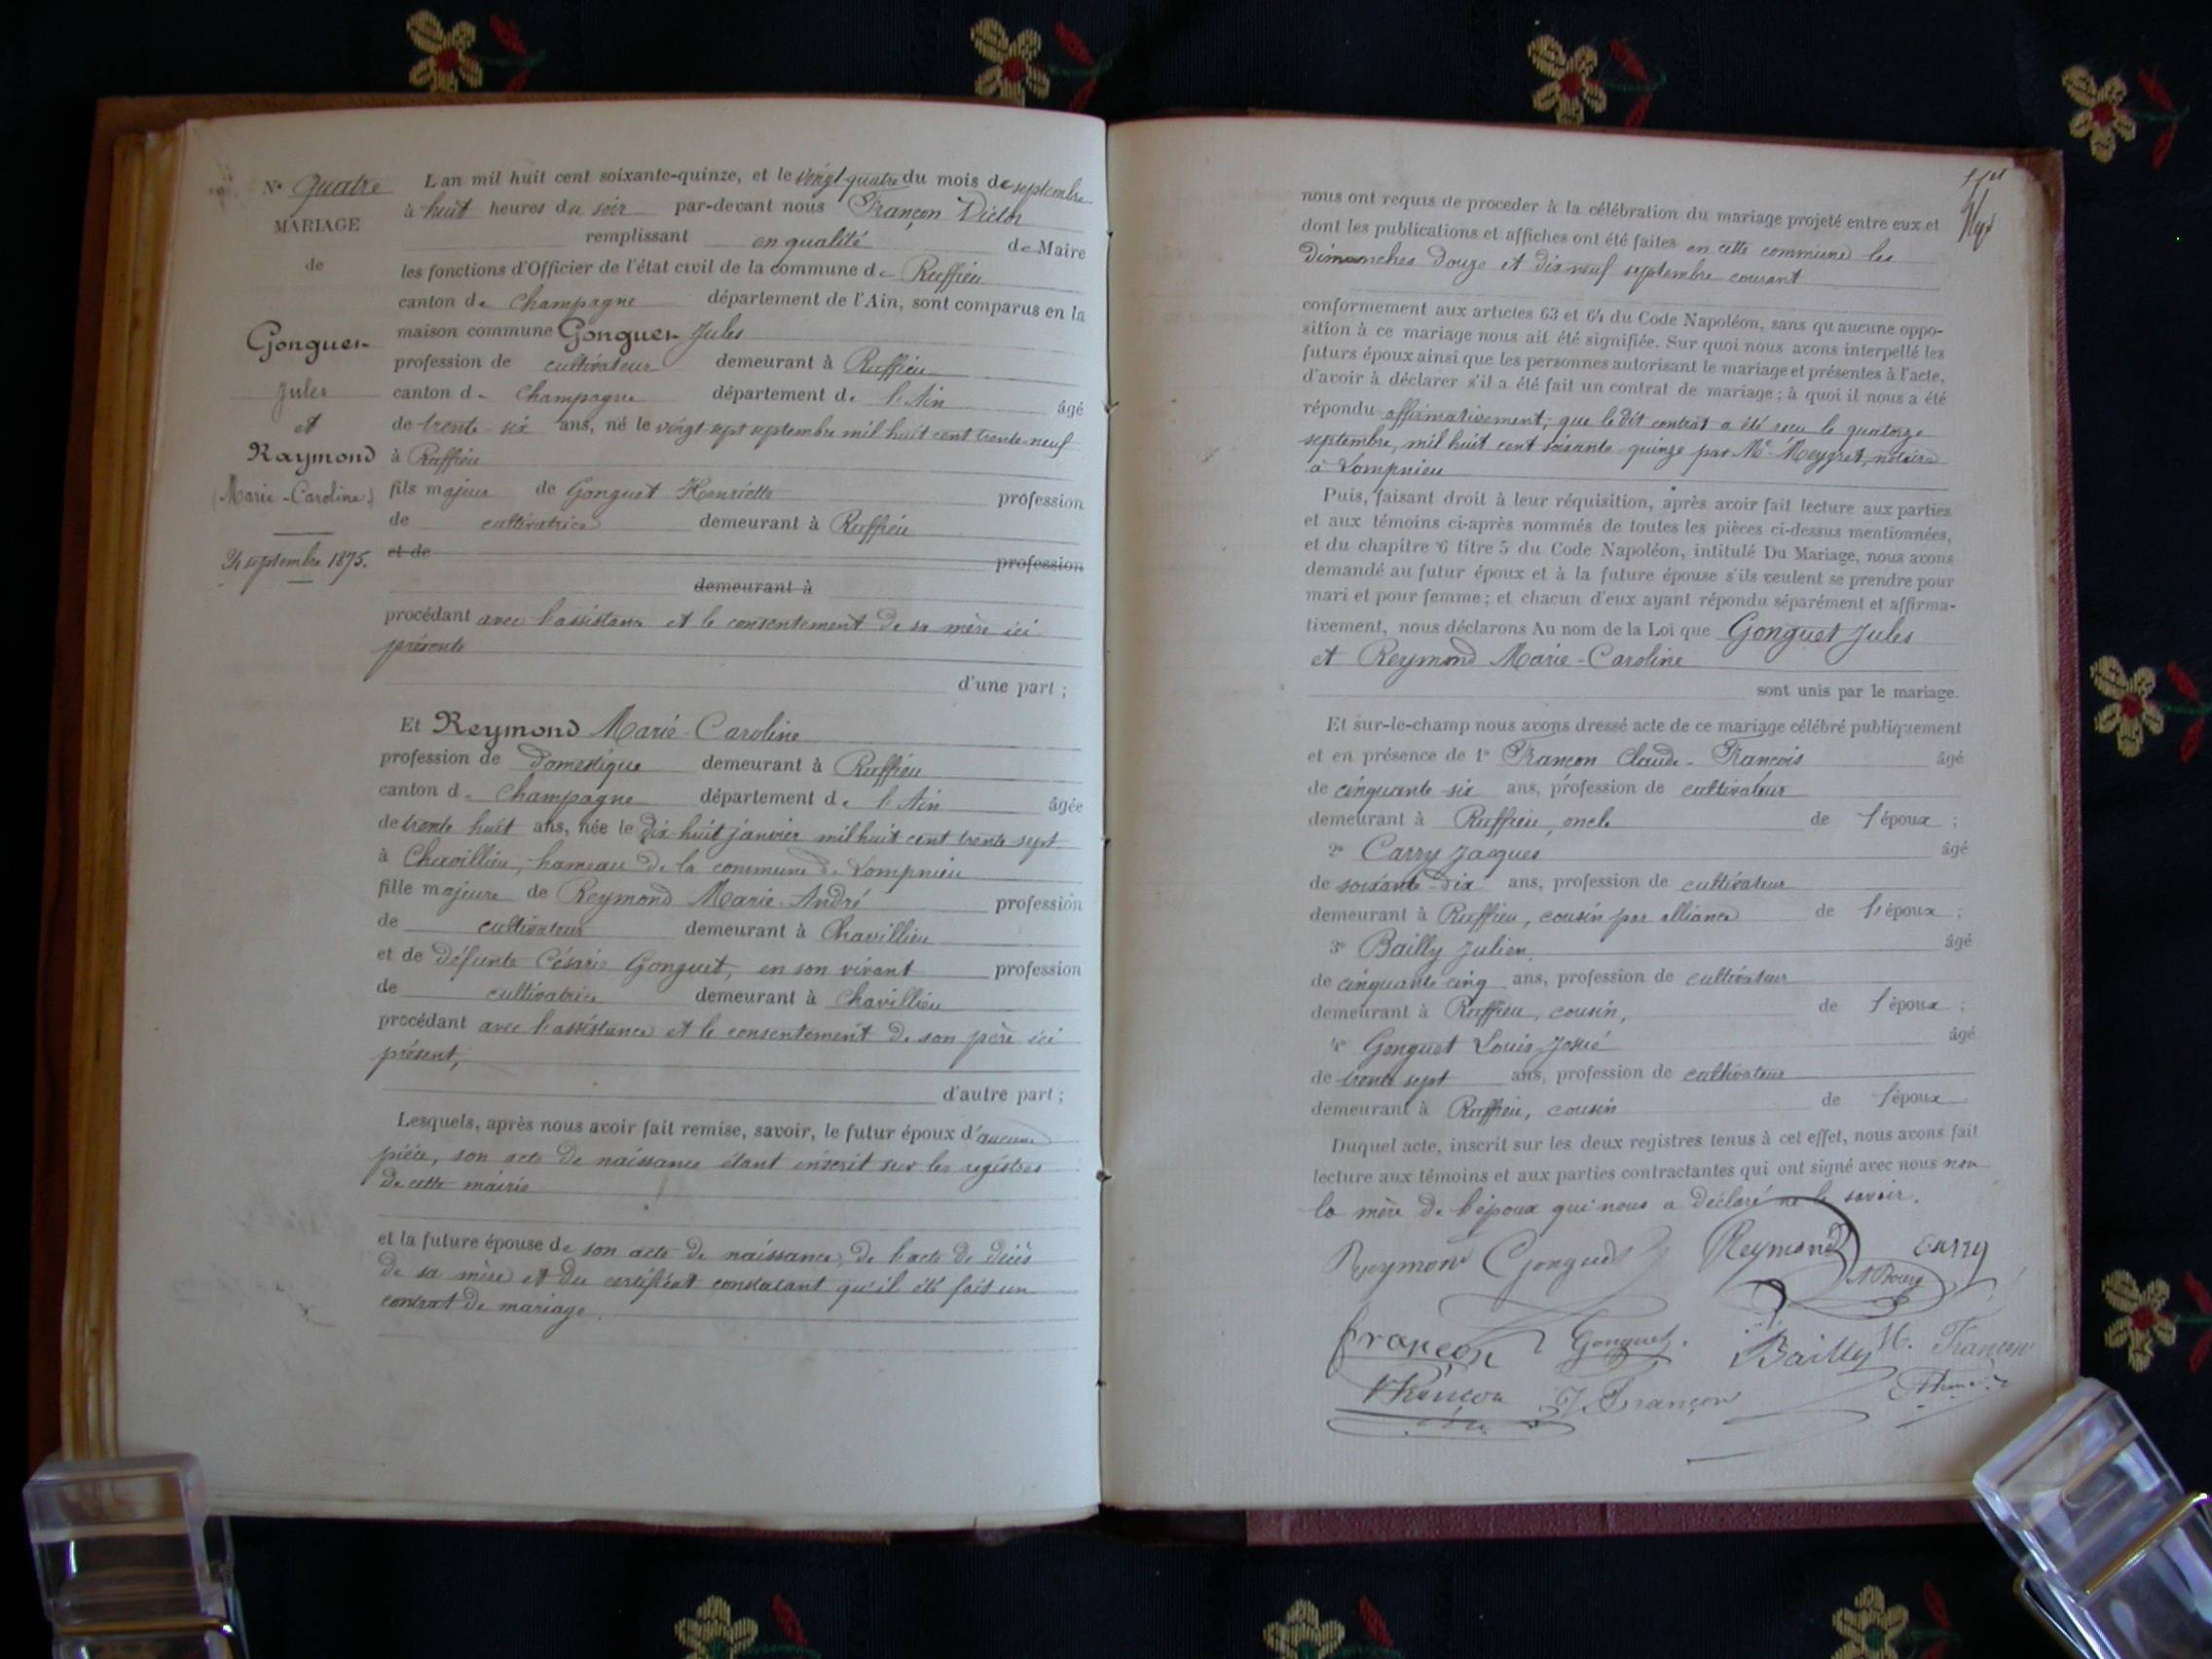 N° Quatre
MARIAGE
de
Gonguet
Jules
et
Raymond
(Marie-Caroline)
24 septembre 1875.
L'an mil huit cent soixante-quinze, et le vingt-quatre du mois de septembre
à huit heures du soir par-devant nous Françon Victor
remplissant en qualité de Maire
les fonctions d'Officier de l'état civil de la commune de Ruffieu
canton de Champagne département de l'Ain, sont comparus en la
maison commune Gonguet Jules
profession de cultivateur demeurant à Ruffieu
canton de Champagne département de l'Ain âgé
de trente-six ans, né le vingt-sept septembre mil huit cent trente-neuf
à Ruffieu
fils majeur de Gonguet Henriette profession
de cultivatrice demeurant à Ruffieu
et de profession
demeurant à
procédant avec l'assistance et le consentement de sa mère ici
présente
d'une part ;
Et Reymond Marie-Caroline
profession de domestique demeurant à Ruffieu
canton de Champagne département de l'Ain âgée
de trente huit ans, née le dix-huit janvier mil huit cent trente sept
à Chavillieu, hameau de la commune de Lompnieu
fille majeure de Reymond Marie-André profession
de cultivateur demeurant à Chavillieu
et de défunte Césarie Gonguet, en son vivant profession
de cultivatrice demeurant à Chavillieu
procédant avec l'assistance et le consentement de son père ici
présent,
d'autre part ;
Lesquels, après nous avoir fait remise, savoir, le futur époux d'aucune
pièce, son acte de naissance étant inscrit sur les registres
de cette mairie
et la future épouse de son acte de naissance, de l'acte de décès
de sa mère et du certificat constatant qu'il été fait un
contrat de mariage.
nous ont requis de proceder à la célébration du mariage projeté entre eux et
dont les publications et affiches ont été faites en cette commune les
Dimanches douze et dix neuf septembre courant
conformement aux articles 63 et 64 du Code Napoléon, sans qu'aucune oppo-
sition à ce mariage nous ait été signifiée. Sur quoi nous avons interpellé les
futurs époux ainsi que les personnes autorisant le mariage et présentes à l'acte,
d'avoir à déclarer s'il a été fait un contrat de mariage ; à quoi il nous a été
répondu affirmativement; que le dit contrat a été reçu le quatorze
septembre, mil huit cent soixante-quinze par Me Meygret, notaire
à Lompnieu
Puis, faisant droit à leur réquisition, après avoir fait lecture aux parties
et aux témoins ci-après nommés de toutes les pièces ci-dessus mentionnées,
et du chapitre 6 titre 5 du Code Napoléon, intitulé Du Mariage, nous avons
demandé au futur époux et à la future épouse s'ils veulent se prendre pour
mari et pour femme ; et chacun d'eux ayant répondu séparément et affirma-
tivement, nous déclarons Au nom de la Loi que Gonguet Jules
et Reymond Marie-Caroline
sont unis par le mariage.
Et sur-le-champ nous avons dressé acte de ce mariage célébré publiquement
et en présence de 1° Françon Claude-François âgé
de cinquante six ans, profession de cultivateur
demeurant à Ruffieu, oncle de l'époux ;
2° Carry Jacques âgé
de soixante-dix ans, profession de cultivateur
demeurant à Ruffieu, cousin par alliance de l'époux ;
3° Bailly Julien, âgé
de cinquante cinq ans, profession de cultivateur
demeurant à Ruffieu, cousin, de l'époux ;
4° Gonguet Louis-Josué âgé
de trente sept ans, profession de cultivateur
demeurant à Ruffieu, cousin de l'époux
Duquel acte, inscrit sur les deux registres tenus à cet effet, nous avons fait
lecture aux témoins et aux parties contractantes qui ont signé avec nous non
la mère de l'époux qui nous a déclaré ne le savoir.
Reymond Gonguet Reymond Carry
Françon Gonguet. Bailly H. Françon
J. Françon